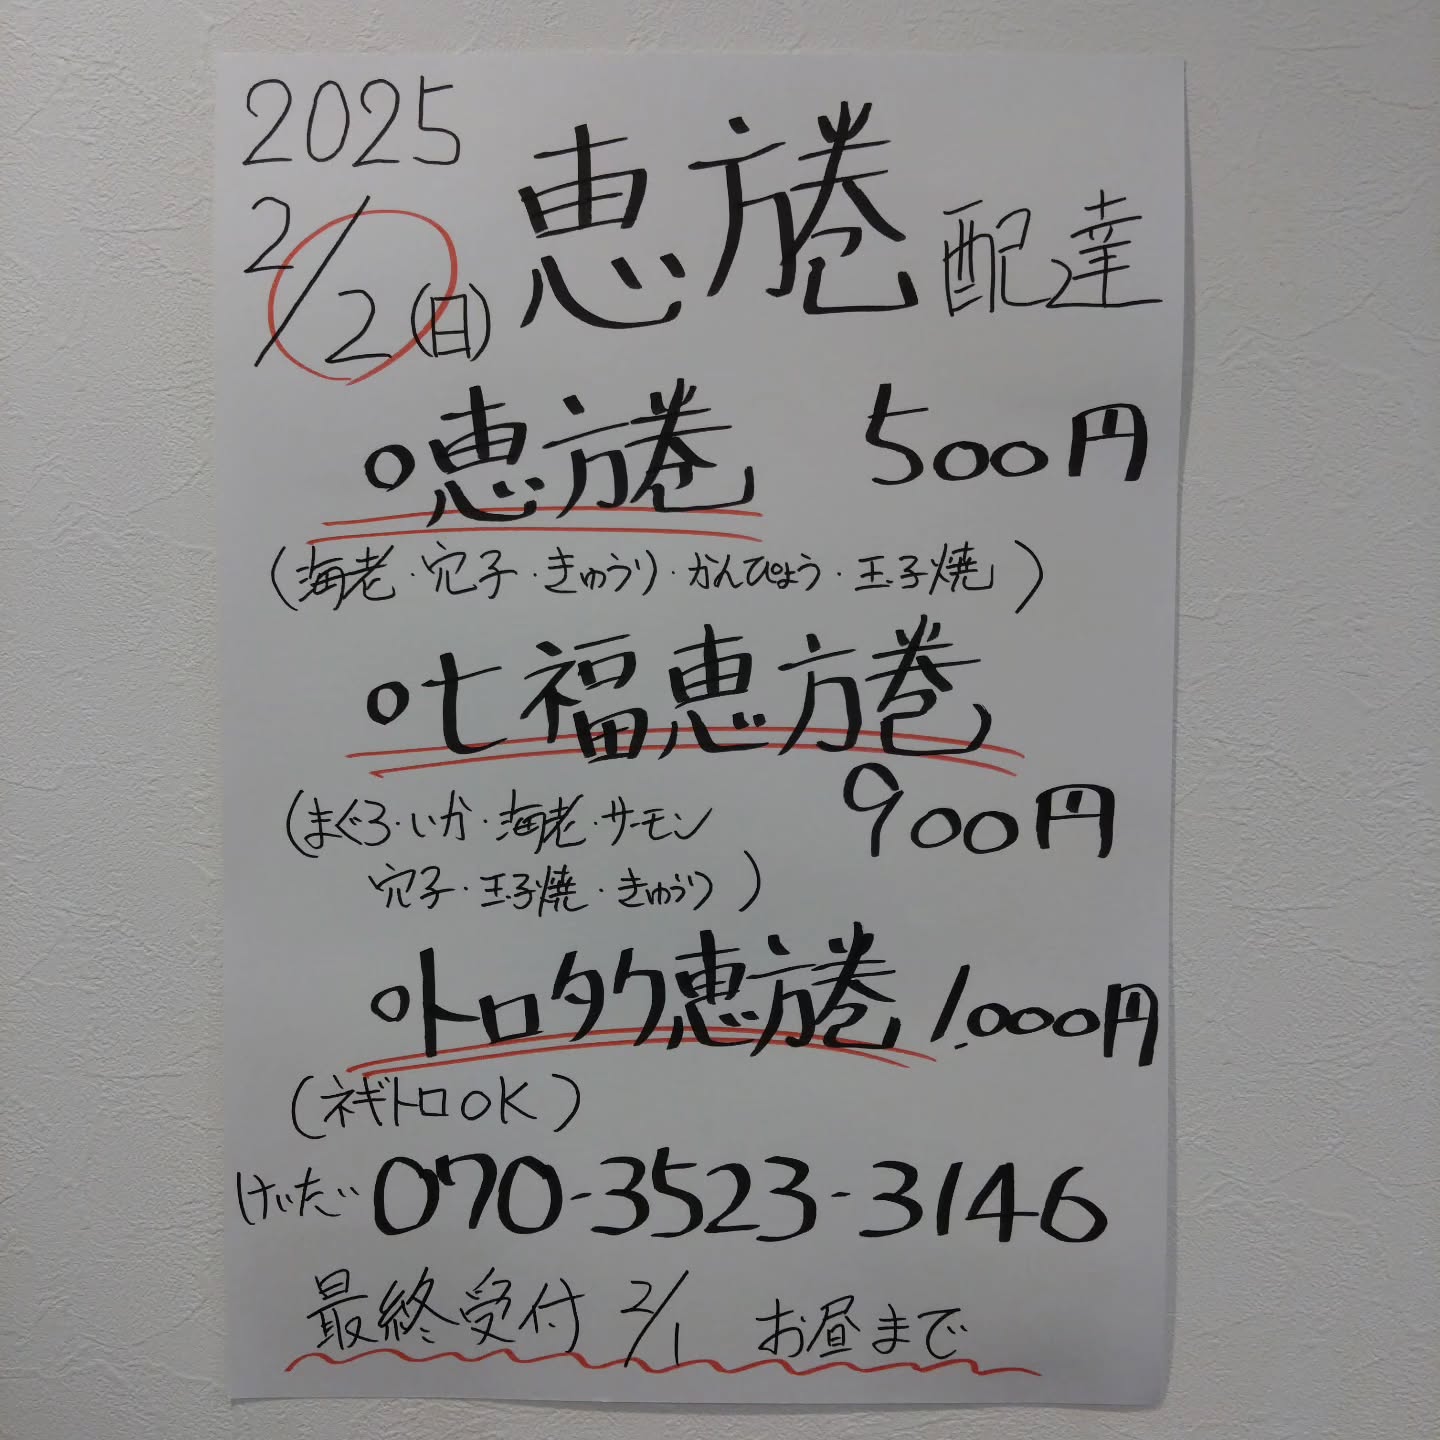 2025
2/2(日) 恵方巻 配達
○恵方巻 500円
(海老・穴子・きゅうり・かんぴょう・玉子焼)
○七福恵方巻
900円
(まぐろ・いか・海老・サーモン
穴子・玉子焼・きゅうり)
○トロタク恵方巻 1,000円
(ネギトロOK)
けいたい 070-3523-3146
最終受付 2/1 お昼まで